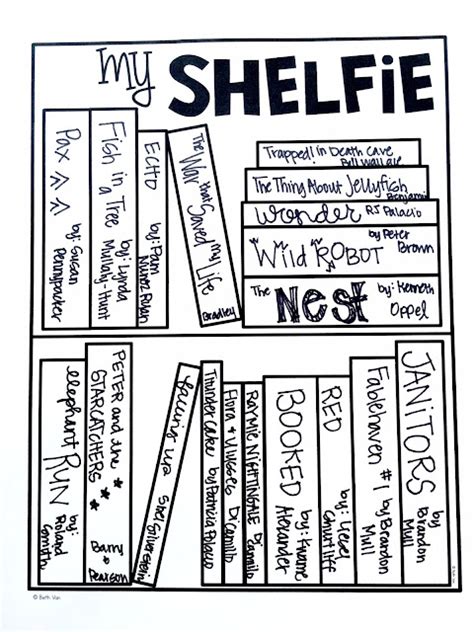 my SHELFiE
Pax
by: Susan
Pennypacker
Fish in
a Tree
by: Lynda
Mullaly-Hunt
ECHO
by: Pam
Ryan
The War that
Saved my
Life
Bradley
Trapped! in Death Cave
Bill Wallace
The Thing About Jellyfish
Benjamin
Wonder RJ Palacio
Wild ROBOT by Peter
Brown
The Nest by: Kenneth
Oppel
elephant RUN
by: Roland
Smith
PETER and the
STARCATCHERS
Barry +
Pearson
Falling Up
Shel Silverstein
Thunder Cake by Patricia Polacco
Flora & Ulysses DiCamillo
RAYMIE NIGHTINGALE
DiCamillo
BOOKED
by: Kwame
Alexander
RED
by:
Fablehaven #1
by: Brandon
Mull
JANITORS
by: Brandon
Mull
© Beth Van